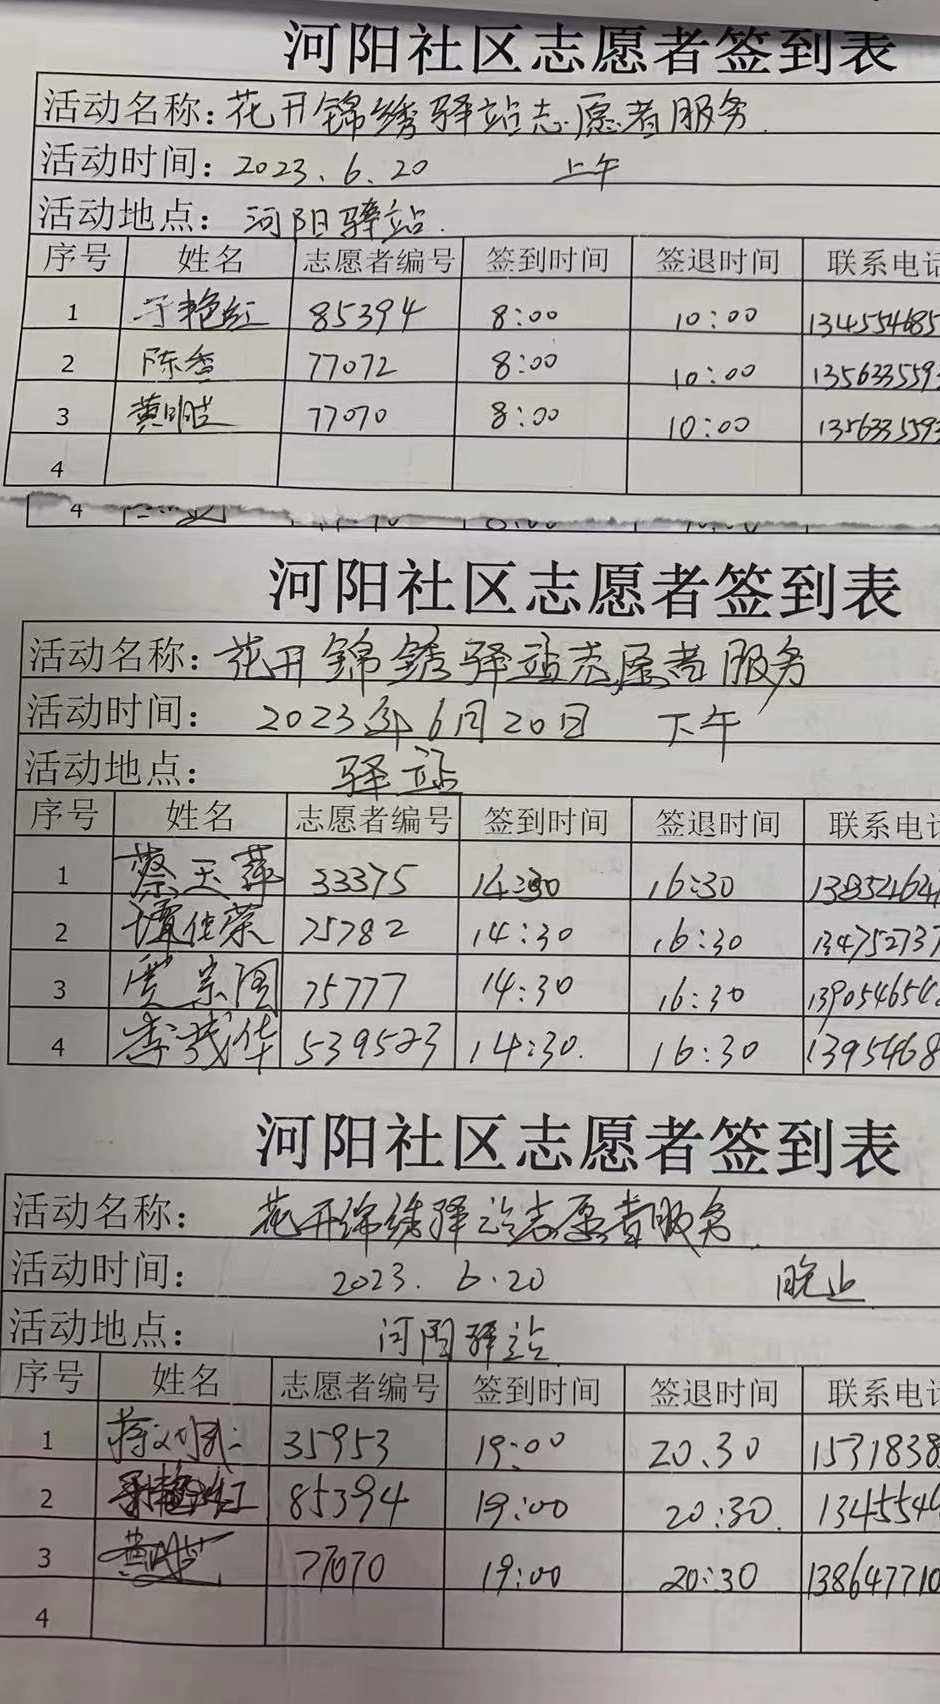 河阳社区志愿者签到表
活动名称：花开锦绣驿站志愿者服务
活动时间：2023.6.20 上午
活动地点：河阳驿站
序号 姓名 志愿者编号 签到时间 签退时间 联系电话
1 于艳红 85394 8:00 10:00 134554685
2 陈香 77072 8:00 10:00 1356335593
3 黄明芝 77070 8:00 10:00 1356335593
4
4
河阳社区志愿者签到表
活动名称：花开锦绣驿站志愿者服务
活动时间：2023年6月20日 下午
活动地点：驿站
序号 姓名 志愿者编号 签到时间 签退时间 联系电话
1 蔡玉萍 33375 14:30 16:30 138524624
2 谭佳荣 75782 14:30 16:30 134752737
3 贾宗国 75777 14:30 16:30 139054654
4 李茂华 539523 14:30 16:30 1395468
河阳社区志愿者签到表
活动名称：花开锦绣驿站志愿者服务
活动时间：2023.6.20 晚上
活动地点：河阳驿站
序号 姓名 志愿者编号 签到时间 签退时间 联系电话
1 35953 19:00 20.30 1531838
2 于艳红 85394 19:00 20:30 1345546
3 黄明芝 77070 19:00 20:30 138647710
4